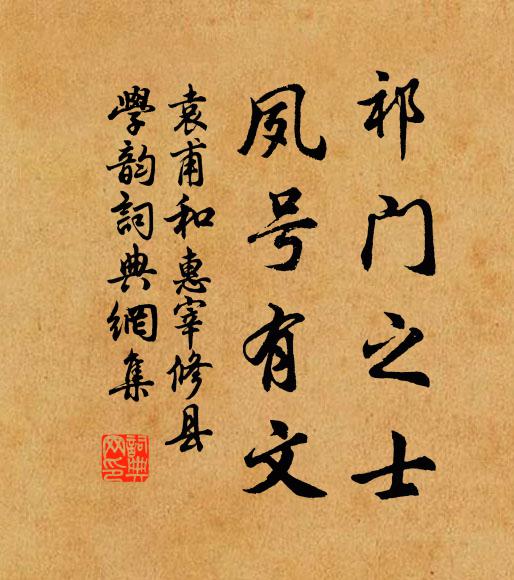 祁门之士
夙号有文
袁甫和惠宰修县
學韵詞典網集
詞典网印